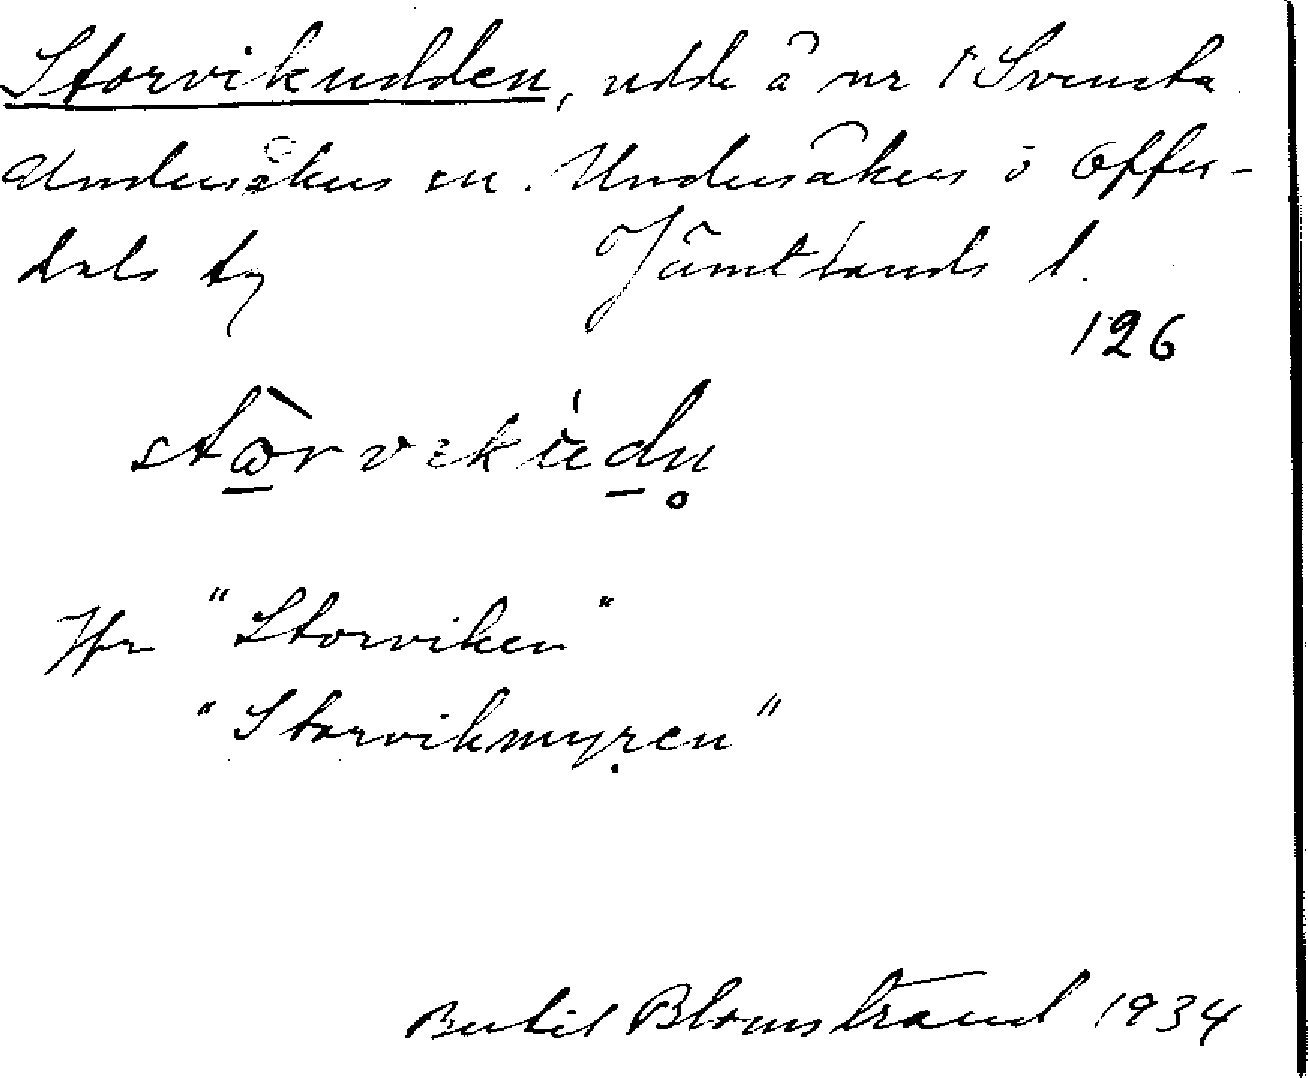 Storvikudden, udde å nr 1 Svenska
Undersåkers sn. Undersåkers o Offer-
dals tg Jämtlands l.
126
Jfr "Storviken"
"Storvikmyren"
Bertil Blomstrand 1934